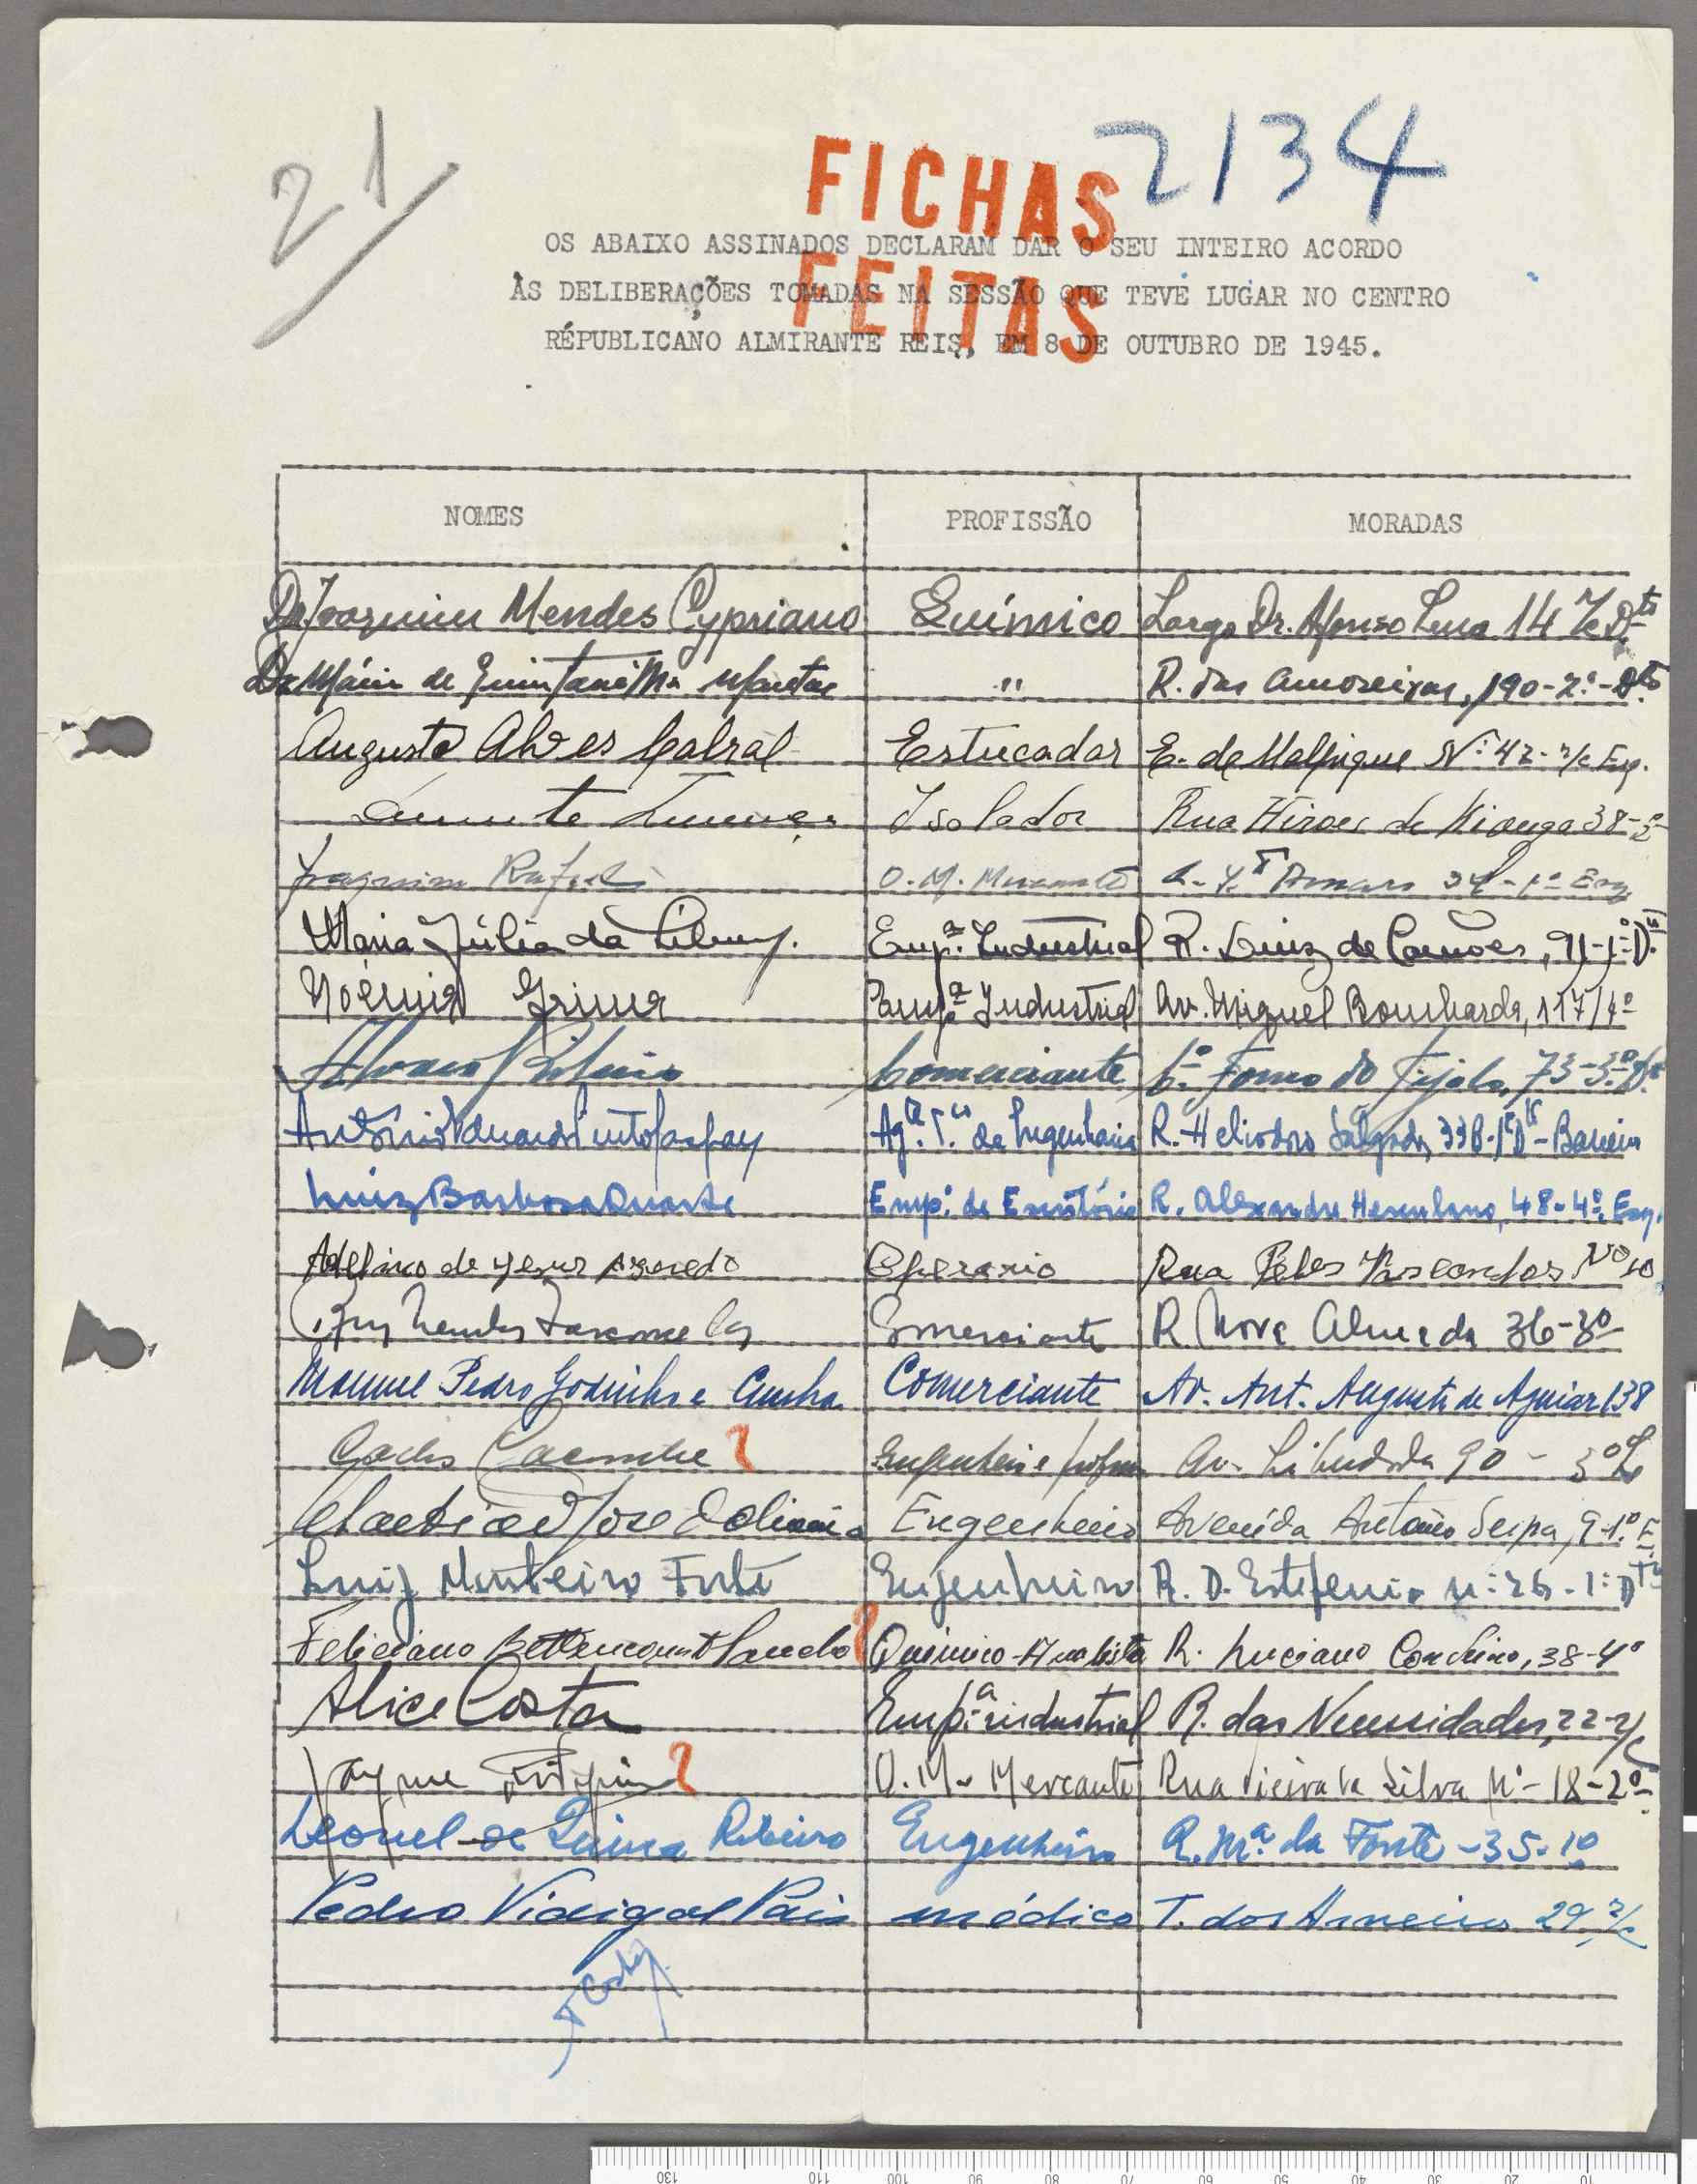 21
2134
FICHAS
FEITAS
OS ABAIXO ASSINADOS DECLARAM DAR O SEU INTEIRO ACORDO
ÀS DELIBERAÇÕES TOMADAS NA SESSÃO QUE TEVE LUGAR NO CENTRO
RÉPUBLICANO ALMIRANTE REIS, EM 8 DE OUTUBRO DE 1945.
NOMES PROFISSÃO MORADAS
Dr. Joaquim Mendes Cypriano Químico Largo Dr. Afonso 14 Dto
Dr. Mário de " R. das Amoreiras, 190-2º-Dto
Augusto Alves Cabral Estucador E. de Malpique Nº 42-r/c Esq.
Isolador Rua Heroes de Kionga 38-2º
Joaquim Rafael O. M. Mercante Amaro 1º Esq
Maria Júlia da Empª. Industrial R. Luiz de Camões, 91-1º-Dto
Noémia Empª Industrial Av. Miguel Bombarda, 117/4º
Alvaro Ribeiro Comerciante Cº. Forno do Tijolo, 73-3º-
António Eduardo Pinto Agte. Tco de Engenharia R. Heliodoro Salgado, 33B-1º Dto-Barreiro
Luiz Barbosa Duarte Empº. de Escritório R. Alexandre Herculano, 48-4º. Esq.
Adelino de Jesus Azevedo Operario Rua Teles Vasconcelos Nº 10
Ruy Mendes Vasconcelos Comerciante R. Nova Almada 36-3º
Manuel Pedro Godinho e Cunha Comerciante Av. Ant. Augusto de Aguiar 138
Carlos Engenheiro Av. Liberdade 90 - 3º
José Oliveira Engenheiro Avenida António Serpa, 9-1º. E.
Luiz Monteiro Engenheiro R. D. Estefania nº 26-1º Dto
Feliciano Bettencourt Químico-Analista R. Luciano Cordeiro, 38-4º
Alice Costa Empª industrial R. das Necessidades, 22-r/c
Jayme O. M. Mercante Rua Vieira da Silva Nº-18-2º-
Leonel de Ribeiro Engenheiro R. Mª. da Fonte-35-1º
Pedro Vidigal Pais médico T. dos Arneiros 29 r/c